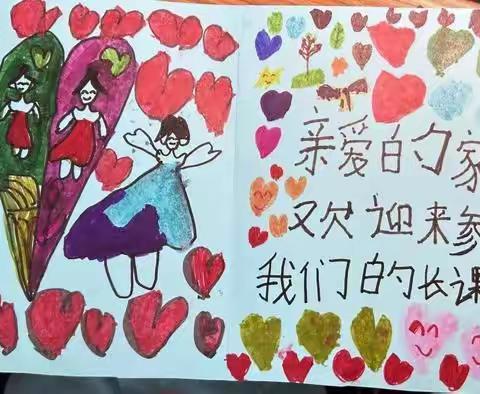 亲爱的家
欢迎来参
我们的长课